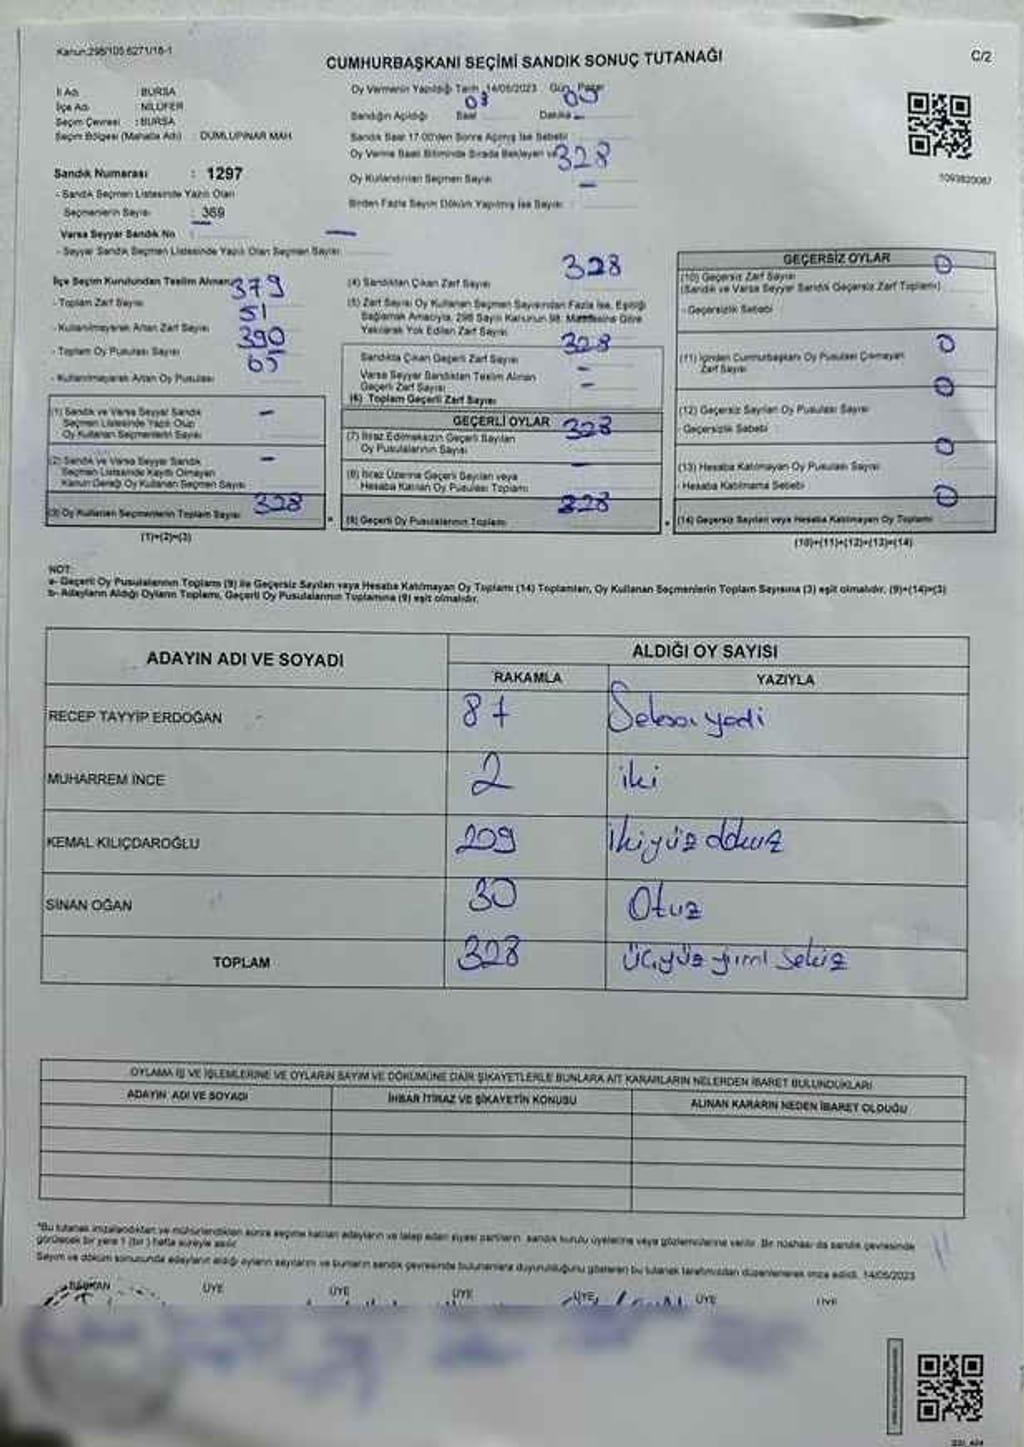 Kanun:298/105 6271/18-1
CUMHURBAŞKANI SEÇİMİ SANDIK SONUÇ TUTANAĞI
C/2
İl Adı : BURSA
İlçe Adı : NİLÜFER
Seçim Çevresi : BURSA
Seçim Bölgesi (Mahalle Adı) : DUMLUPINAR MAH.
Sandık Numarası : 1297
- Sandık Seçmen Listesinde Yazılı Olan
Seçmenlerin Sayısı : 369
Varsa Seyyar Sandık No : —
- Seyyar Sandık Seçmen Listesinde Yazılı Olan Seçmen Sayısı
Oy Vermenin Yapıldığı Tarih 14/05/2023 Gün Pazar
Sandığın Açıldığı Saat 08 Dakika 00
Sandık Saat 17.00'den Sonra Açılmış İse Sebebi
Oy Verme Saati Bitiminde Sırada Bekleyen
Oy Kullandırılan Seçmen Sayısı 328
Birden Fazla Sayım Döküm Yapılmış İse Sayısı —
1093820087
İlçe Seçim Kurulundan Teslim Alınan
- Toplam Zarf Sayısı 379
- Kullanılmayarak Artan Zarf Sayısı 51
- Toplam Oy Pusulası Sayısı 390
- Kullanılmayarak Artan Oy Pusulası 65
(1) Sandık ve Varsa Seyyar Sandık
Seçmen Listesinde Yazılı Olup
Oy Kullanan Seçmenlerin Sayısı —
(2) Sandık ve Varsa Seyyar Sandık
Seçmen Listesinde Kayıtlı Olmayan
Kanun Gereği Oy Kullanan Seçmen Sayısı —
(3) Oy Kullanan Seçmenlerin Toplam Sayısı 328
(1)+(2)=(3)
(4) Sandıktan Çıkan Zarf Sayısı 328
(5) Zarf Sayısı Oy Kullanan Seçmen Sayısından Fazla İse, Eşitliği
Sağlamak Amacıyla, 298 Sayılı Kanunun 98. Maddesine Göre
Yakılarak Yok Edilen Zarf Sayısı
Sandıkta Çıkan Geçerli Zarf Sayısı 328
Varsa Seyyar Sandıktan Teslim Alınan
Geçerli Zarf Sayısı —
(6) Toplam Geçerli Zarf Sayısı —
GEÇERLİ OYLAR
(7) İtiraz Edilmeksizin Geçerli Sayılan
Oy Pusulalarının Sayısı 328
(8) İtiraz Üzerine Geçerli Sayılan veya
Hesaba Katılan Oy Pusulası Toplamı —
(9) Geçerli Oy Pusulalarının Toplamı 328
GEÇERSİZ OYLAR
(10) Geçersiz Zarf Sayısı 0
(Sandık ve Varsa Seyyar Sandık Geçersiz Zarf Toplamı)
- Geçersizlik Sebebi
(11) İçinden Cumhurbaşkanı Oy Pusulası Çıkmayan
Zarf Sayısı 0
(12) Geçersiz Sayılan Oy Pusulası Sayısı 0
- Geçersizlik Sebebi
(13) Hesaba Katılmayan Oy Pusulası Sayısı 0
- Hesaba Katılmama Sebebi
(14) Geçersiz Sayılan veya Hesaba Katılmayan Oy Toplamı 0
(10)+(11)+(12)+(13)=(14)
NOT:
a- Geçerli Oy Pusulalarının Toplamı (9) ile Geçersiz Sayılan veya Hesaba Katılmayan Oy Toplamı (14) Toplamları, Oy Kullanan Seçmenlerin Toplam Sayısına (3) eşit olmalıdır. (9)+(14)=(3)
b- Adayların Aldığı Oyların Toplamı, Geçerli Oy Pusulalarının Toplamına (9) eşit olmalıdır.
ADAYIN ADI VE SOYADI
ALDIĞI OY SAYISI
RAKAMLA YAZIYLA
RECEP TAYYİP ERDOĞAN 87 Seksen yedi
MUHARREM İNCE 2 iki
KEMAL KILIÇDAROĞLU 209 ikiyüz dokuz
SİNAN OĞAN 30 Otuz
TOPLAM 328 üçyüz yirmi sekiz
OYLAMA İŞ VE İŞLEMLERİNE VE OYLARIN SAYIM VE DÖKÜMÜNE DAİR ŞİKAYETLERLE BUNLARA AİT KARARLARIN NELERDEN İBARET BULUNDUKLARI
ADAYIN ADI VE SOYADI İHBAR İTİRAZ VE ŞİKAYETİN KONUSU ALINAN KARARIN NEDEN İBARET OLDUĞU
*Bu tutanak imzalandıktan ve mühürlendikten sonra seçime katılan adayların ve talep eden siyasi partilerin sandık kurulu üyelerine veya gözlemcilerine verilir. Bir nüshası da sandık çevresinde
görülecek bir yere 1 (bir) hafta süreyle asılır.
Sayım ve döküm sonucunda adayların aldığı oyların sayılarını ve bunların sandık çevresinde bulunanlara duyurulduğunu gösteren bu tutanak tarafımızdan düzenlenerek imza edildi. 14/05/2023
BAŞKAN ÜYE ÜYE ÜYE ÜYE ÜYE ÜYE